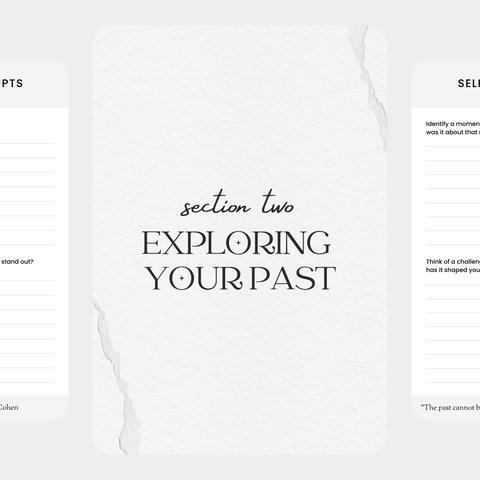 IPTS
stand out?
Cohen
section two
EXPLORING
YOUR PAST
SEL
Identify a momen
was it about that
Think of a challen
has it shaped you
"The past cannot b